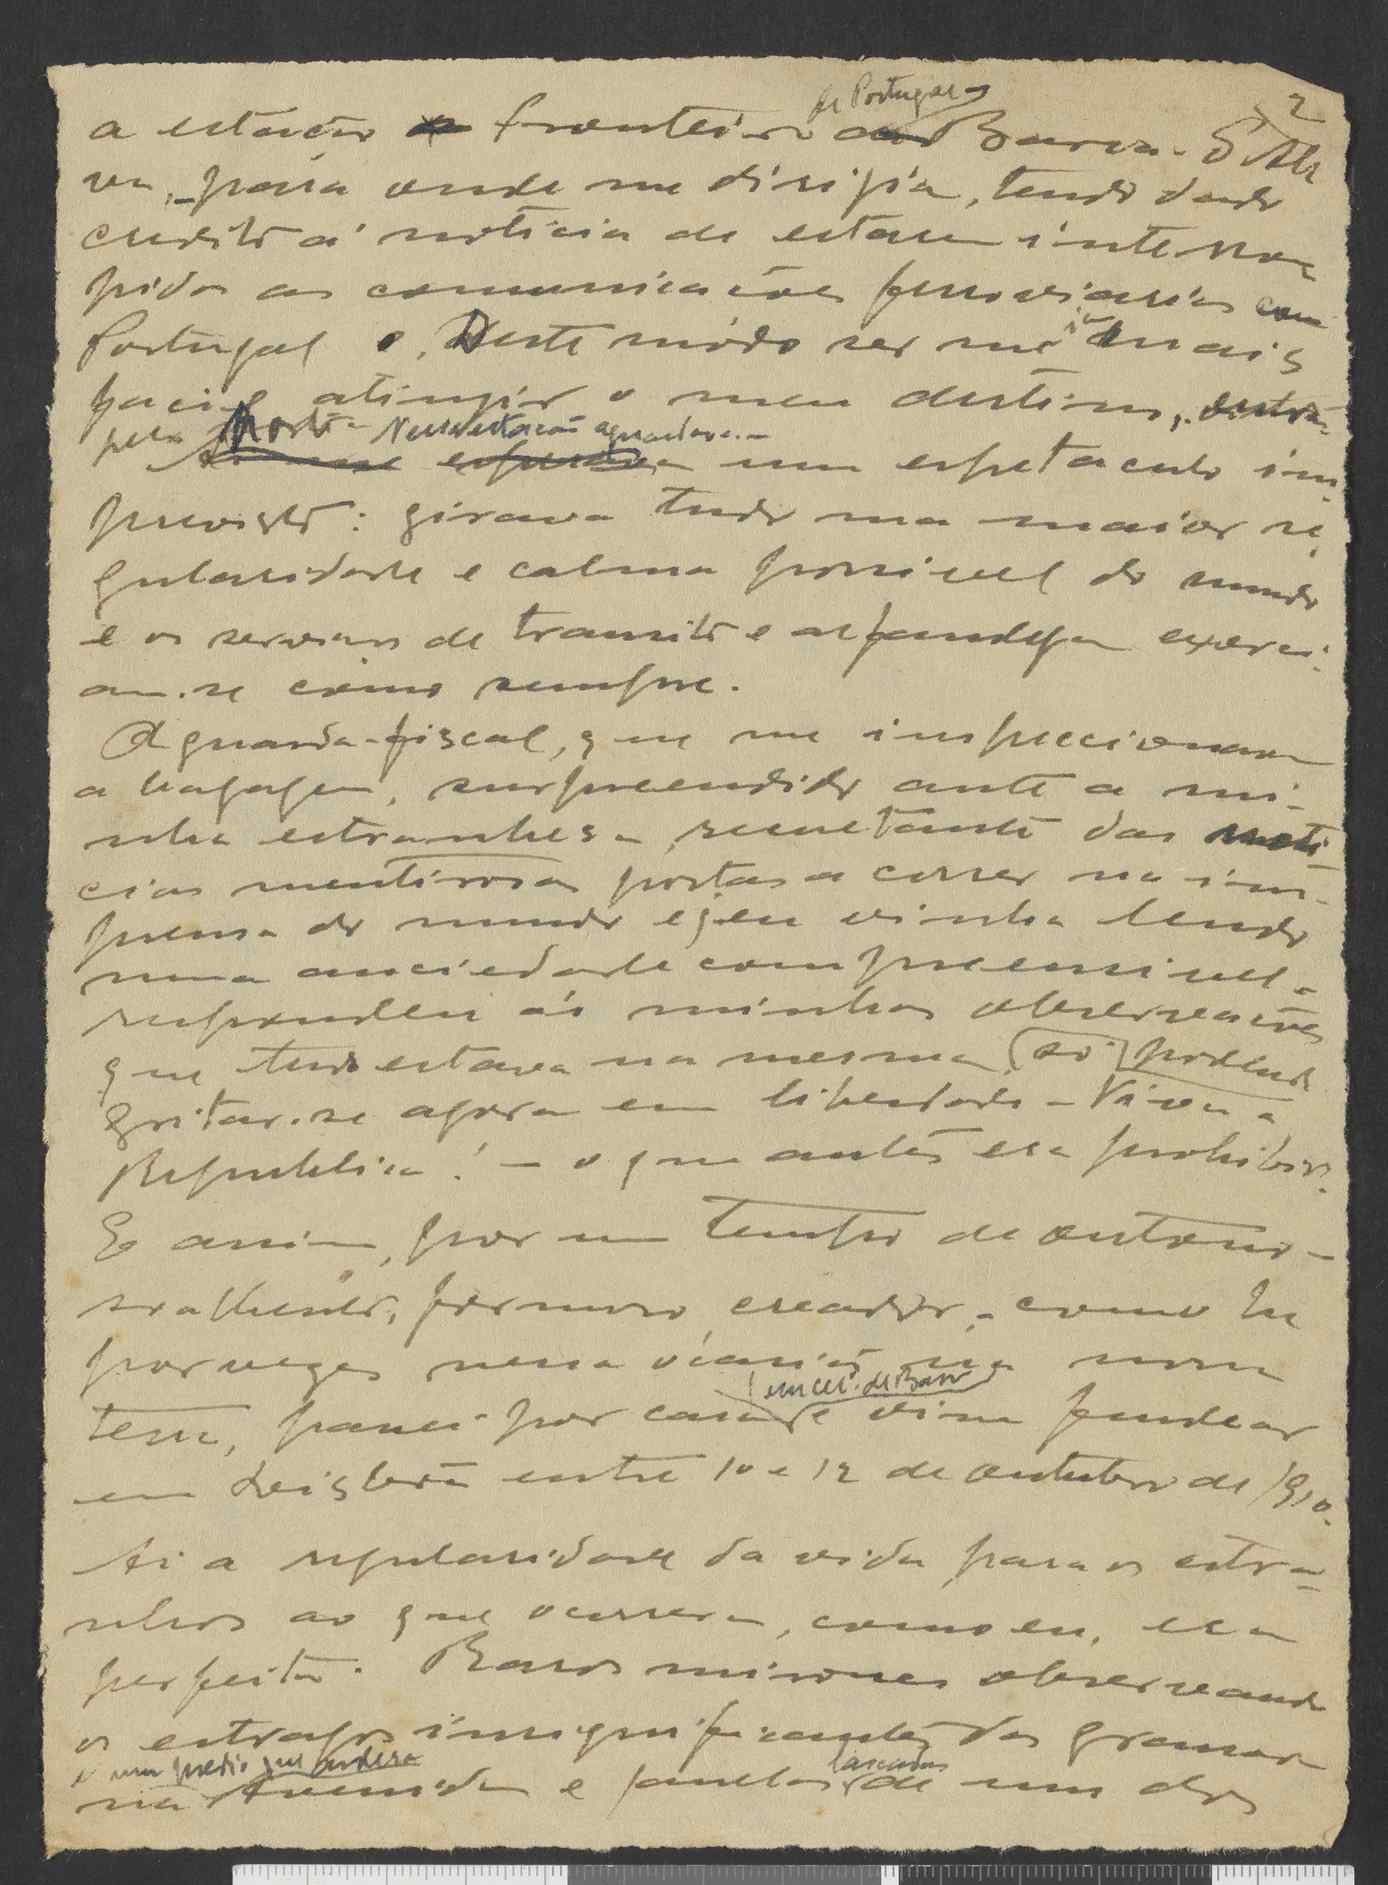 2
de Portugal
a estação fronteira Barca d'Al
va, para onde me dirigia, tendo dado
credito á noticia de estarem interrom
pidas as comunicações ferroviarias com
Portugal e, deste módo ser me ia mais
facil atingir o meu destino, entran-
pelo Norte. Nessa estação aguardava-
um espetaculo im
previsto: girava tudo na maior re
gularidade e calma possivel do mundo
e os serviços de transito e alfandega exerci-
am-se como sempre.
O guarda-fiscal, que me inspeccionava
a bagagem, surpreendido ante a mi-
nha estranhesa, resultante das noti-
cias mentirosas postas a correr na im-
prensa do mundo e q eu vinha lendo
numa anciedade compreensivel-
respondeu ás minhas observações
que tudo estava na mesma, só podendo
gritar-se agora em liberdade - Viva a
Republica! - o que antes era prohibido.
E assim, por um tempo de outono-
soalhento, formoso, creador,- como ha
por vezes nessa ócasião no nosso
tem, passei por casa e vim fundear
em Cel. de Basto
em Leisboa entre 10 e 12 de outubro de 1910.
Ai a regularidade da vida para os estra-
nhos ao que ocorrera, como eu, era
perfeita. Raros mirones observando
os estragos insignificantes das granadas
e um predio que ardera
na Avenida e janelas lascadas de um dos